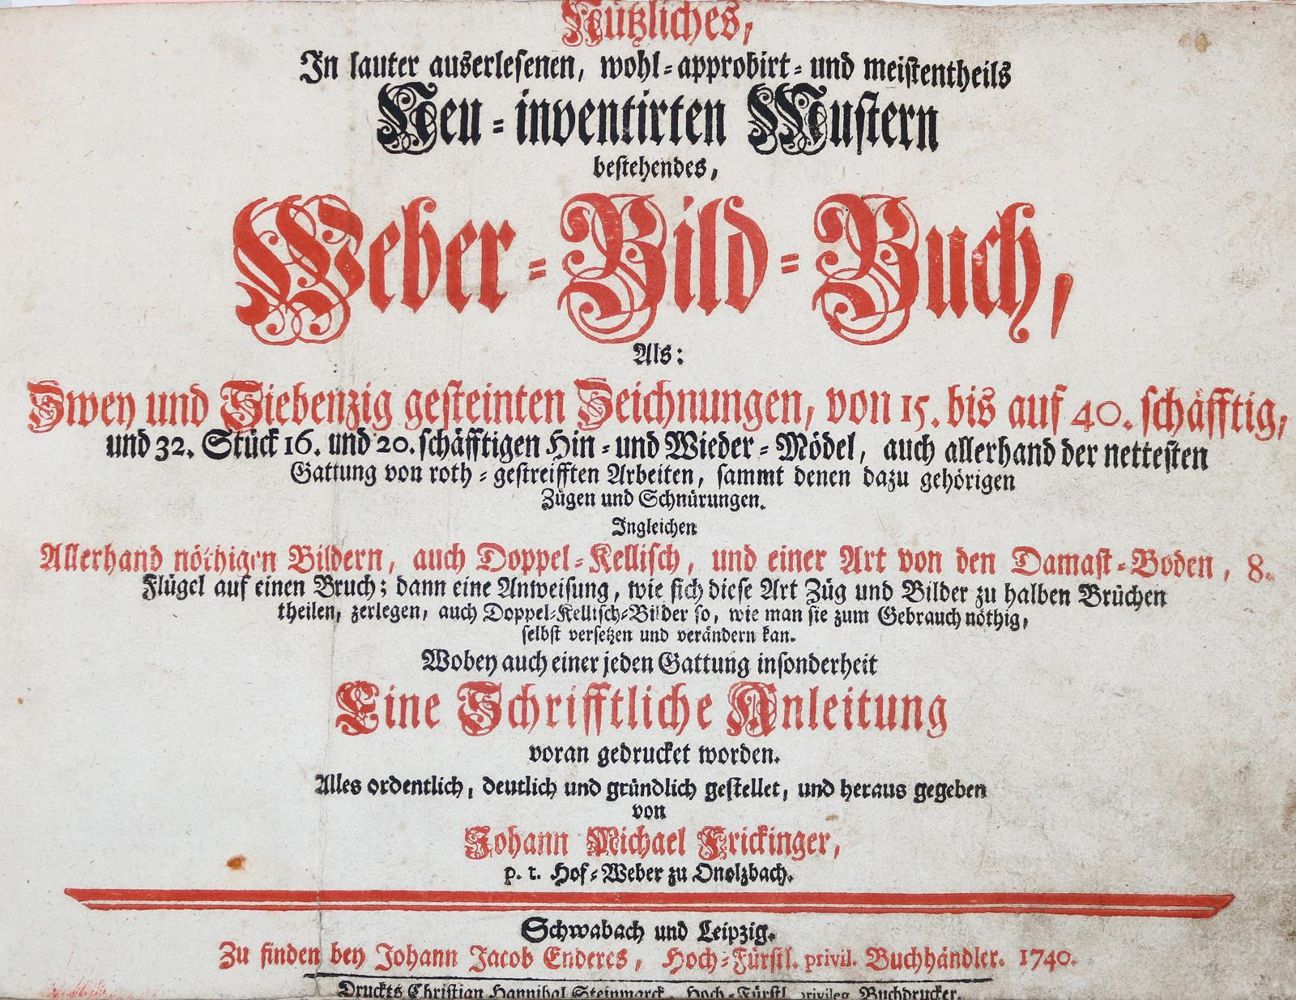 Nützliches,
In lauter auserlesenen, wohl-approbirt- und meistentheils
Neu-inventirten Mustern
bestehendes,
Weber-Bild-Buch,
Als:
Zwey und Siebenzig gesteinten Zeichnungen, von 15. bis auf 40. schäfftig,
und 32. Stück 16. und 20. schäfftigen Hin- und Wieder-Mödel, auch allerhand der nettesten
Gattung von roth-gestreifften Arbeiten, sammt denen dazu gehörigen
Zügen und Schnürungen.
Ingleichen
Allerhand nöthigen Bildern, auch Doppel-Kellisch, und einer Art von den Damast-Boden, 8.
Flügel auf einen Bruch; dann eine Anweisung, wie sich diese Art Züg und Bilder zu halben Brüchen
theilen, zerlegen, auch Doppel-Kellisch-Bilder so, wie man sie zum Gebrauch nöthig,
selbst versetzen und verändern kan.
Wobey auch einer jeden Gattung insonderheit
Eine Schrifftliche Anleitung
voran gedrucket worden.
Alles ordentlich, deutlich und gründlich gestellet, und heraus gegeben
von
Johann Michael Frickinger,
p. t. Hof-Weber zu Onolzbach.
Schwabach und Leipzig.
Zu finden bey Johann Jacob Enderes, Hoch-Fürstl. privil. Buchhändler. 1740.
Druckts Christian Hannibal Steinmarck, Hoch-Fürstl. privileg. Buchdrucker.